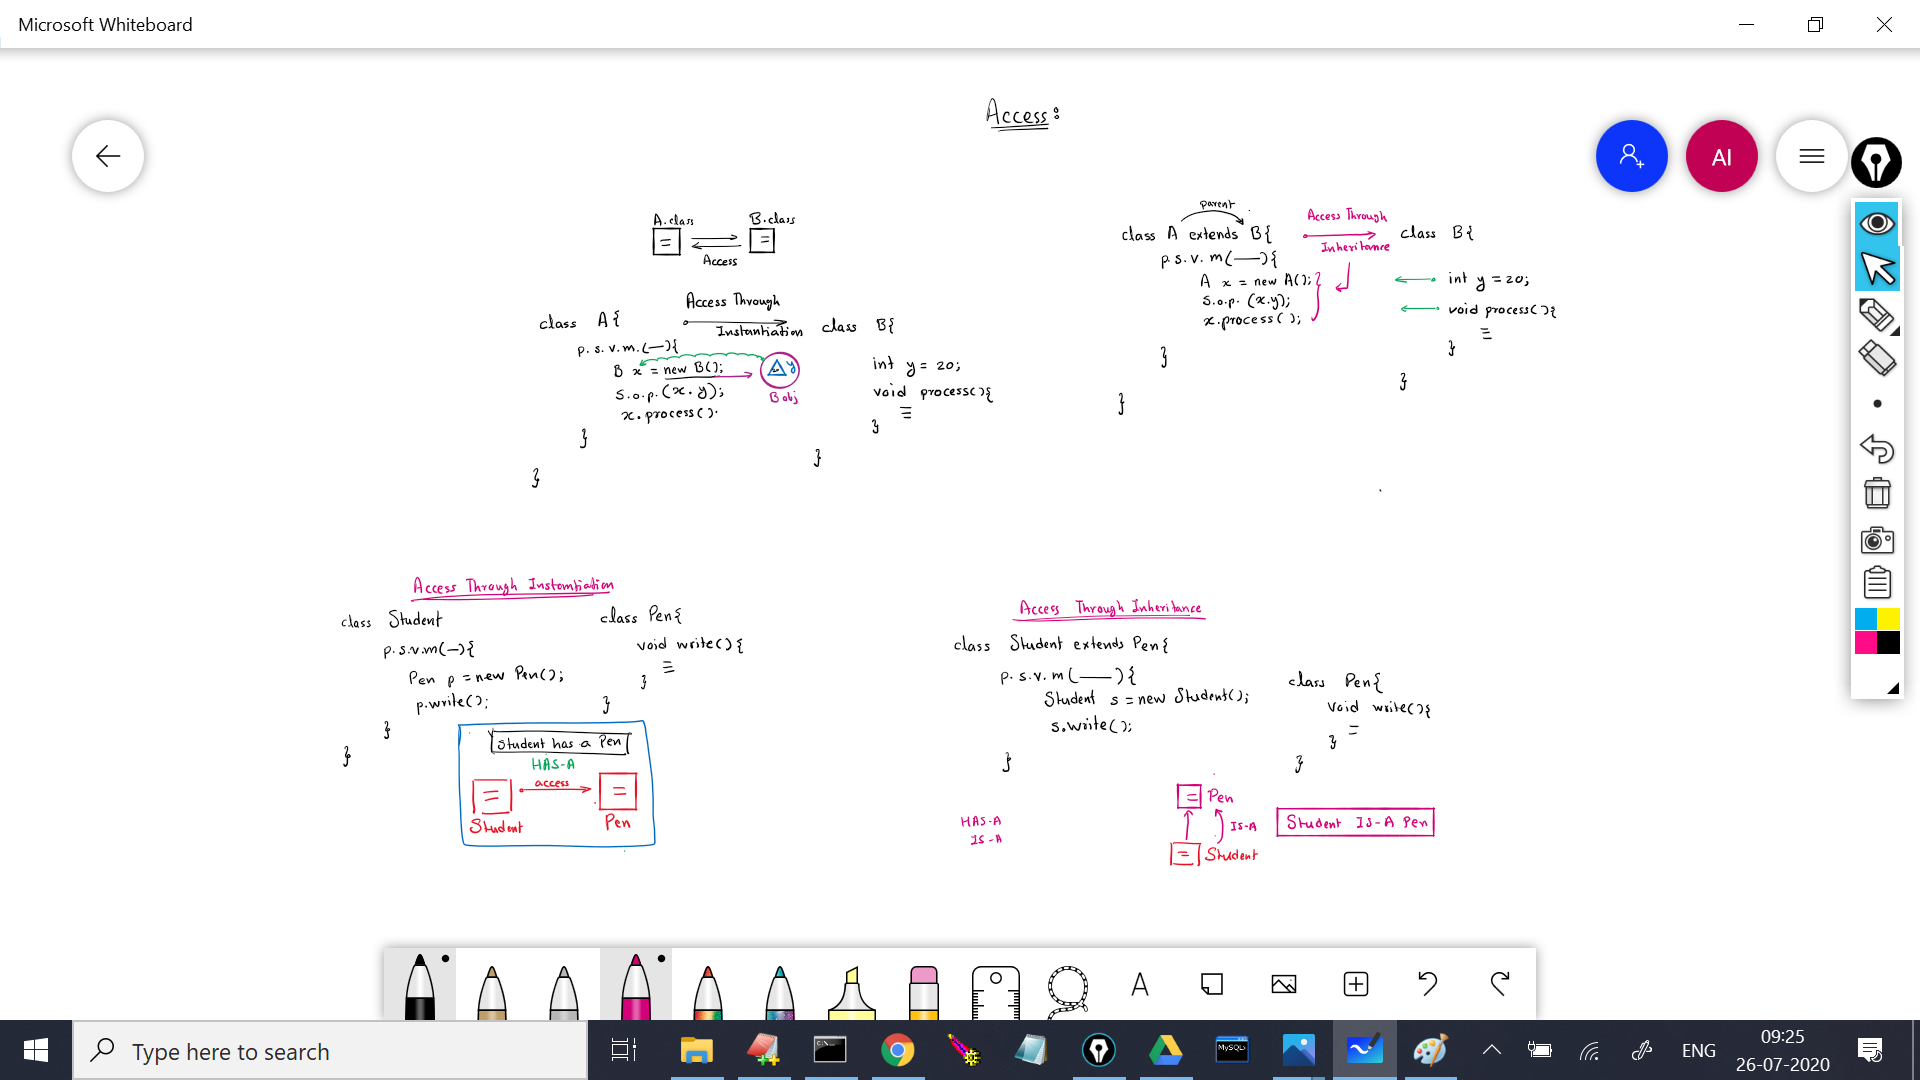 Microsoft Whiteboard
Access:
AI
A.class B.class
Access
class A{
Access Through
Instantiation
p.s.v.m.(—){
B x = new B();
S.o.p.(x.y);
x.process()
}
}
20 y
B obj
class B{
int y = 20;
void process(){
}
}
parent
class A extends B{
p.s.v.m(——){
A x = new A();
S.o.p. (x.y);
x.process();
}
}
Access Through
Inheritance
class B{
int y = 20;
void process(){
}
}
Access Through Instantiation
class Student
p.s.v.m(—){
Pen p = new Pen();
p.write();
}
}
class Pen{
void write(){
}
}
Student has a Pen
HAS-A
access
Student Pen
Access Through Inheritance
class Student extends Pen{
p.s.v.m(——){
Student s = new Student();
s.write();
}
class Pen{
void write(){
}
}
HAS-A
IS-A
Pen
IS-A
Student
Student IS-A Pen
A
Type here to search
MySQL
ENG
09:25
26-07-2020